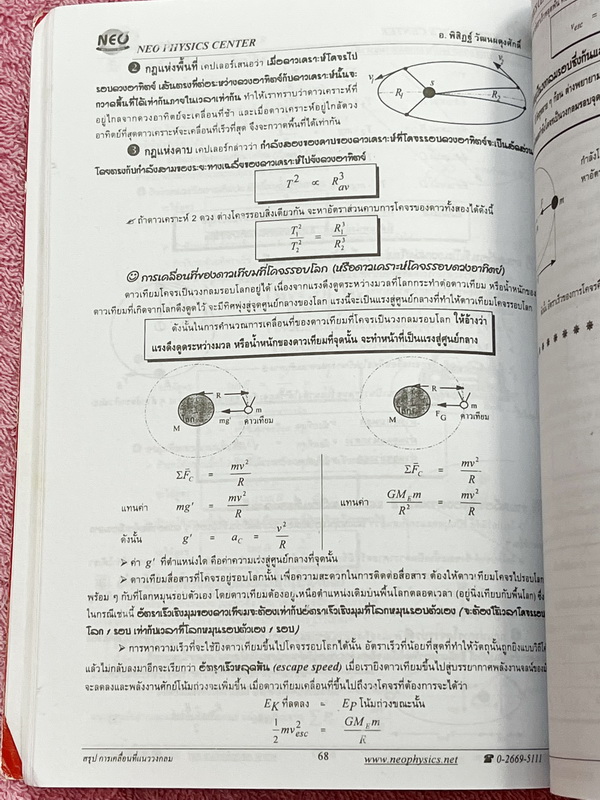 NEO
NEO PHYSICS CENTER
อ. พิสิฏฐ์ วัฒนผดุงศักดิ์
❷ กฎแห่งพื้นที่ เคปเลอร์เสนอว่า เมื่อดาวเคราะห์โคจรไป
รอบดวงอาทิตย์ เส้นตรงที่ต่อระหว่างดวงอาทิตย์กับดาวเคราะห์นั้นจะ
กวาดพื้นที่ได้เท่ากันภายในเวลาเท่ากัน ทำให้เราทราบว่าดาวเคราะห์ที่
อยู่ไกลจากดวงอาทิตย์จะเคลื่อนที่ช้า และเมื่อดาวเคราะห์อยู่ใกล้ดวง
อาทิตย์ที่สุดดาวเคราะห์จะเคลื่อนที่เร็วที่สุด จึงจะกวาดพื้นที่ได้เท่ากัน
R₁ S R₂
❸ กฎแห่งคาบ เคปเลอร์กล่าวว่า กำลังสองของคาบของดาวเคราะห์ที่โคจรรอบดวงอาทิตย์จะเป็นสัดส่วน
โดยตรงกับกำลังสามของระยะทางเฉลี่ยของดาวเคราะห์ไปยังดวงอาทิตย์
T² ∝ R³av
ถ้าดาวเคราะห์ 2 ดวง ต่างโคจรรอบสิ่งเดียวกัน จะหาอัตราส่วนคาบการโคจรของดาวทั้งสองได้ดังนี้
T₁²/T₂² = R₁³/R₂³
☺ การเคลื่อนที่ของดาวเทียมที่โคจรรอบโลก (หรือดาวเคราะห์โคจรรอบดวงอาทิตย์)
ดาวเทียมโคจรเป็นวงกลมรอบโลกอยู่ได้ เนื่องจากแรงดึงดูดระหว่างมวลที่โลกกระทำต่อดาวเทียม หรือน้ำหนักของ
ดาวเทียมที่เกิดจากโลกดึงดูดไว้ จะมีทิศพุ่งสู่จุดศูนย์กลางของโลก แรงนี้จะเป็นแรงสู่ศูนย์กลางที่ทำให้ดาวเทียมโคจรรอบโลก
ดังนั้นในการคำนวณการเคลื่อนที่ของดาวเทียมที่โคจรเป็นวงกลมรอบโลก ให้อ้างว่า
แรงดึงดูดระหว่างมวล หรือน้ำหนักของดาวเทียมที่จุดนั้น จะทำหน้าที่เป็นแรงสู่ศูนย์กลาง
R m M mg' ดาวเทียม
R m M F_G ดาวเทียม
ΣF̄_C = mv²/R
ΣF̄_C = mv²/R
แทนค่า mg' = mv²/R
แทนค่า GM_E m/R² = mv²/R
ดังนั้น g' = a_C = v²/R
➢ ค่า g' ที่ตำแหน่งใด คือค่าความเร่งสู่ศูนย์กลางที่จุดนั้น
➢ ดาวเทียมสื่อสารที่โคจรอยู่รอบโลกนั้น เพื่อความสะดวกในการติดต่อสื่อสาร ต้องให้ดาวเทียมโคจรไปรอบโลก
พร้อม ๆ กับที่โลกหมุนรอบตัวเอง โดยดาวเทียมต้องอยู่เหนือตำแหน่งเดิมบนพื้นโลกตลอดเวลา (อยู่นิ่งเทียบกับพื้นโลก) ซึ่ง
ในกรณีเช่นนี้ อัตราเร็วเชิงมุมของดาวเทียมจะต้องเท่ากับอัตราเร็วเชิงมุมที่โลกหมุนรอบตัวเอง (จะต้องใช้เวลาโคจรรอบ
โลก 1 รอบ เท่ากับเวลาที่โลกหมุนรอบตัวเอง 1 รอบ)
➢ การหาความเร็วที่จะใช้ยิงดาวเทียมขึ้นไปโคจรรอบโลกได้นั้น อัตราเร็วที่น้อยที่สุดที่ทำให้วัตถุนั้นถูกยิงแบบวิถีโค้ง
แล้วไม่กลับลงมาอีกจะเรียกว่า อัตราเร็วหลุดพ้น (escape speed) เมื่อเรายิงดาวเทียมขึ้นไปสู่บรรยากาศพลังงานจลน์ของ
จะลดลงและพลังงานศักย์โน้มถ่วงจะเพิ่มขึ้น เมื่อดาวเทียมเคลื่อนที่ขึ้นไปถึงวงโคจรที่ต้องการจะได้ว่า
E_K ที่ลดลง = E_P โน้มถ่วงขณะนั้น
1/2 mv²esc = GM_E m/R
สรุป การเคลื่อนที่แนววงกลม
68
www.neophysics.net
☎ 0-2669-5111